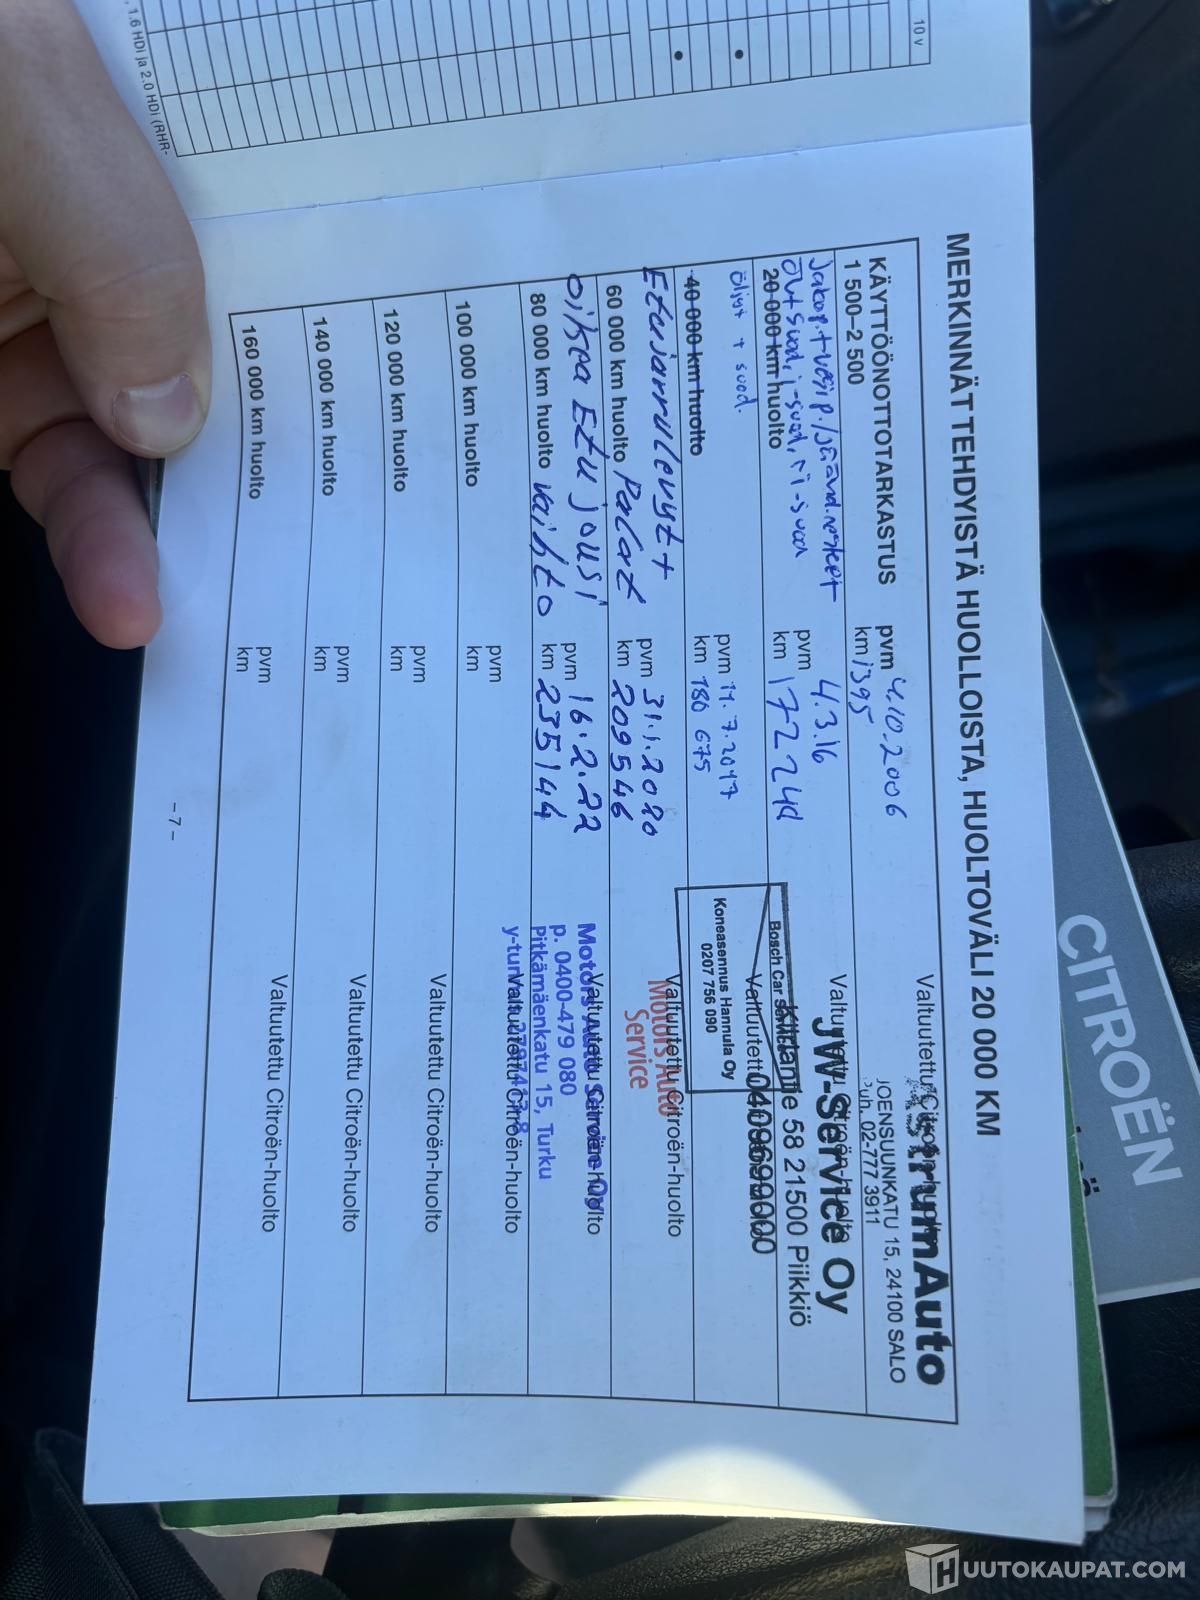 10 v
, 1.6 HDi ja 2.0 HDi (RHR-
MERKINNÄT TEHDYISTÄ HUOLLOISTA, HUOLTOVÄLI 20 000 KM
KÄYTTÖÖNOTTOTARKASTUS pvm 4.10.2006 Valtuutettu Citroën-huolto
1 500–2 500 km 1395
AutrumAuto
JOENSUUNKATU 15, 24100 SALO
Puh. 02-777 3911
Jakop. + vesip. /
pvm 4.3.16 Valtuutettu Citroën-huolto
20 000 km huolto km 172 241
JW-Service Oy
58 21500 Piikkiö
0409699000
öljyt + suod. pvm 11.7.2017 Valtuutettu
40 000 km huolto km 180 675
Bosch Car Service
Koneasennus Hannula Oy
0207 756 090
Etujarrulevyt + pvm 31.1.2020 Valtuutettu Citroën-huolto
60 000 km huolto Palat km 209546
Motors Auto
Service
oikea Etu jousi pvm 16.2.22 Valtuutettu Citroën-huolto
80 000 km huolto vaihto km 235144
Motors Auto Service Oy
p. 0400-479 080
Pitkämäenkatu 15, Turku
pvm Valtuutettu Citroën-huolto
100 000 km huolto km
pvm Valtuutettu Citroën-huolto
120 000 km huolto km
pvm Valtuutettu Citroën-huolto
140 000 km huolto km
pvm Valtuutettu Citroën-huolto
160 000 km huolto km
– 7 –
CITROËN
HUUTOKAUPAT.COM